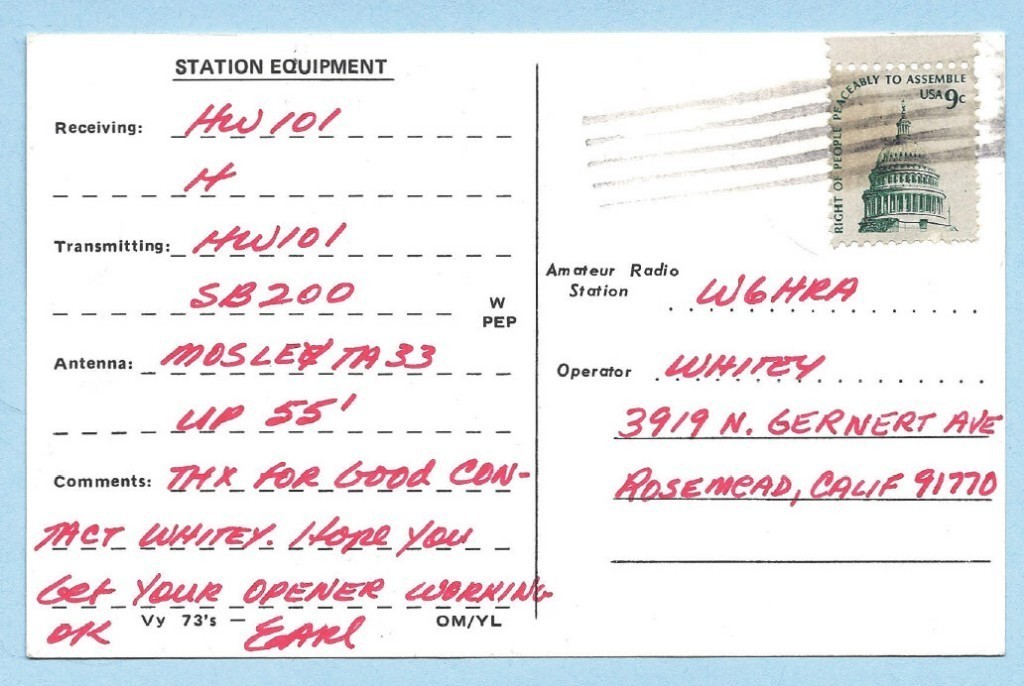 STATION EQUIPMENT
Receiving: HW 101
H
Transmitting: HW101
SB200 W PEP
Antenna: MOSLEY TA 33
UP 55'
Comments: THX FOR GOOD CON-
TACT WHITEY. HOPE YOU
GET YOUR OPENER WORKING
OK Vy 73's — EARL OM/YL
RIGHT OF PEOPLE PEACEABLY TO ASSEMBLE
USA 9c
Amateur Radio Station W6HRA
Operator WHITEY
3919 N. GERNERT AVE
ROSEMEAD, CALIF 91770